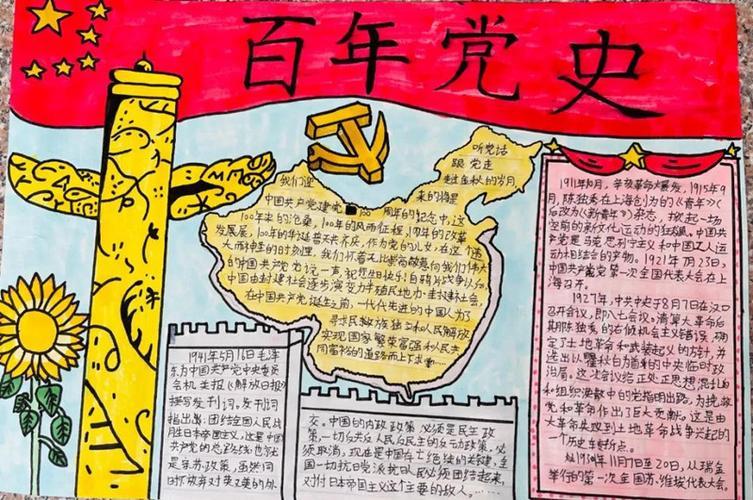 百年党史
听党话
跟党走
走过金秋的岁月,
我们迎来的将是
中国共产党建党100周年的纪念日,这
100年来的沧桑,100年的风雨征程,1周年的改革
发展层,100年的华诞普天齐庆,作为党的儿女,在这个伟
大而神圣的时刻里,我们怀着无比崇高敬意向我们伟大
的中国共产党说一声,祝您生日快乐!自鸦片战争以后,
中国由封建社会逐步演变为半殖民地半封建社会,
在中国共产党诞生之前,一代代先进的中国人为了
寻求民族独立和人民解放
实现国家繁荣富强和人民共
同富裕的道路而上下求索……
1941年5月16日毛泽
东为中国共产党中央委员
会机关报《解放日报》
撰写发刊词。发刊词
指出:团结全国人民战
胜日本帝国主义,这是中国
共产党的总路线,也就
是英苏政策,虽然同
时仍放弃对英美的外
交。中国的内政政策,必须是民主政
策,一切反共反人民反民主的反动政策,必
须取消,现在是中国存亡绝续的关键,全
国一切抗日党派抗日人民必须团结起来,
对付日本帝国主义这个主要的敌人。……
1911年10月,辛亥革命大爆发,1915年9
月,陈独秀在上海创办的《青年》(
后改为《新青年》)杂志,掀起一场
空前的新文化运动的狂飙。中国共
产党是马克思列宁主义和中国工人运
动相结合的产物。1921年7月23日,
中国共产党第一次全国代表大会在上
海召开。
1927年,中共中央于8月7日在汉口
召开会议,即八七会议。清算大革命后
期陈独秀的右倾机会主义错误,确
定了土地革命和武装起义的方针,并
选出以瞿秋白为首的中央临时政
治局。这次会议给正处于思想混乱
和组织涣散中的党指明出路,为挽救
党和革命作出了巨大贡献。这是由
大革命失败到土地革命战争兴起的
一个历史转折点。
1931年11月7日至20日,从瑞金
举行的第一次全国苏维埃代表大会。